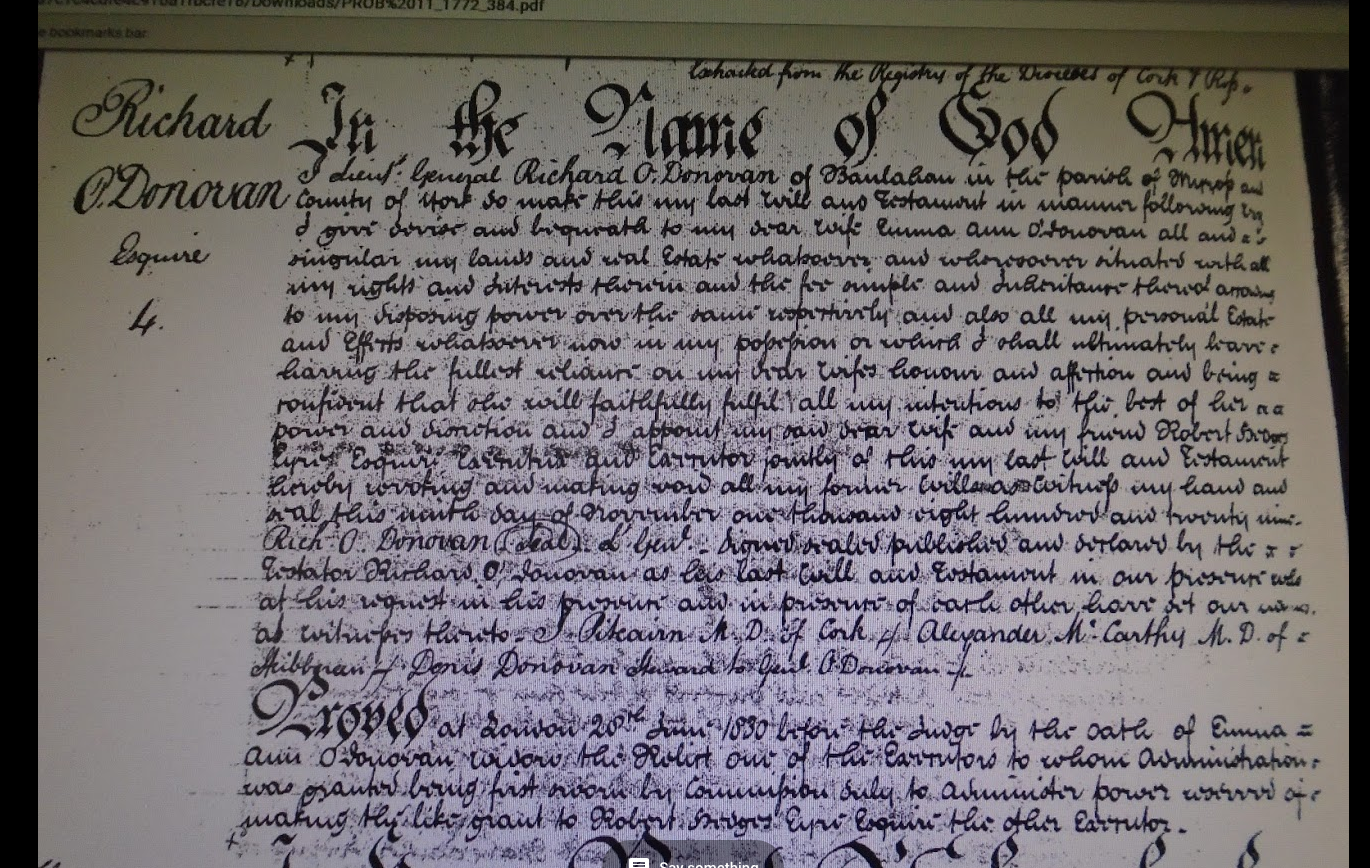 /Downloads/PROB%2011_1772_384.pdf
e bookmarks bar
Extracted from the Registry of the Diocese of Cork & Ross.
Richard In the Name of God Amen
O'Donovan I Lieut. General Richard O'Donovan of Baulahan in the parish of and
Esquire County of Cork do make this my last Will and Testament in manner following
I give devise and bequeath to my dear Wife Emma Ann O'Donovan all and
singular my lands and real Estate whatsoever and wheresoever situated with all
my rights and Interests therein and the fee simple and Inheritance thereof
4. to my disposing power over the same respectively and also all my personal Estate
and Effects whatsoever now in my possession or which I shall ultimately leave
having the fullest reliance on my dear Wifes honour and affection and being
confident that she will faithfully fulfil all my intentions to the best of her
power and discretion and I appoint my said dear Wife and my friend Robert Hedges
Eyre Esquire Executrix and Executor jointly of this my last Will and Testament
hereby revoking and making void all my former Wills as Witness my hand and
seal this ninth day of November one thousand eight hundred and twenty nine.
Rich. O'Donovan (Seal) L Genl. - Signed sealed published and declared by the
Testator Richard O'Donovan as his last Will and Testament in our presence who
at his request in his presence and in presence of each other have set our names
as witnesses thereto - J Pitcairn M.D. of Cork - Alexander Mc.Carthy M.D. of
Skibbrean - Denis Donovan Steward to Genl. O'Donovan -
Proved at London 28th June 1830 before the Judge by the oath of Emma
Ann O'Donovan widow the Relict one of the Executors to whom Administration
was granted being first sworn by Commission duly to administer power reserved of
making the like grant to Robert Hedges Eyre Esquire the other Executor.
Say something